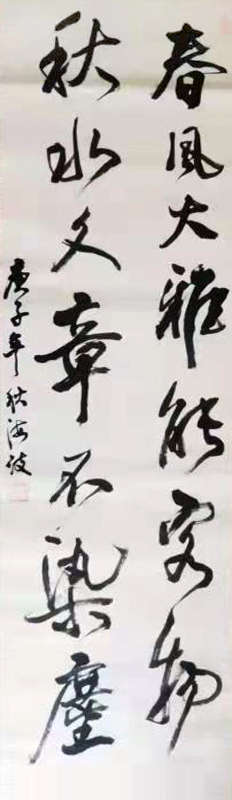 春风大雅能容物
秋水文章不染尘
庚子年秋海波